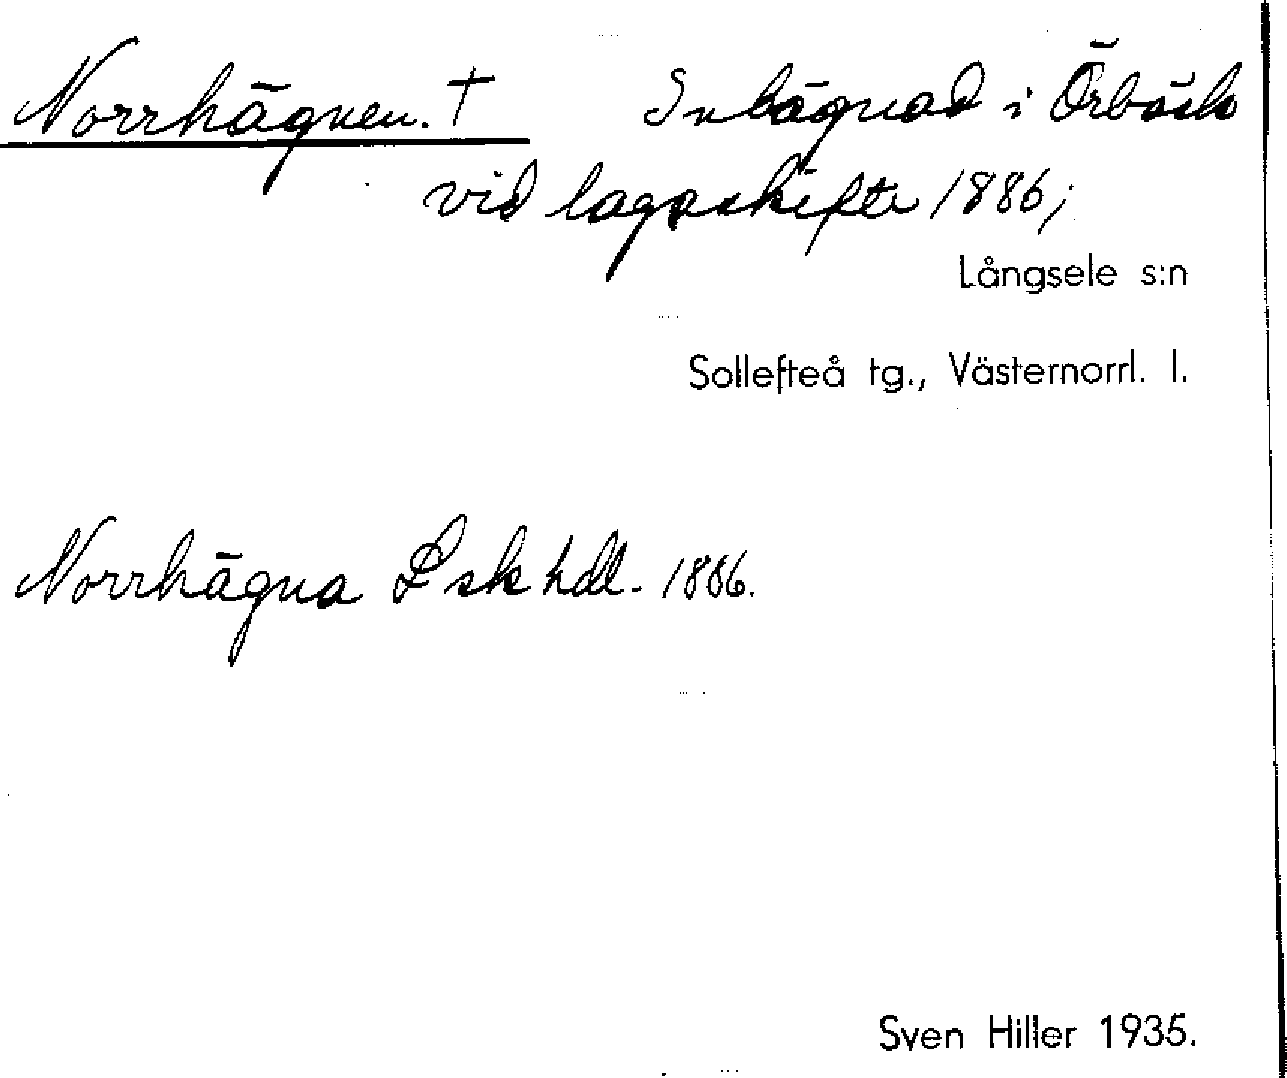 Norrhägnen. † Inhägnad i Örbäck
vid lagaskifte 1886;
Långsele s:n
Sollefteå tg., Västernorrl. l.
Norrhägna Lskhdl. 1886.
Sven Hiller 1935.